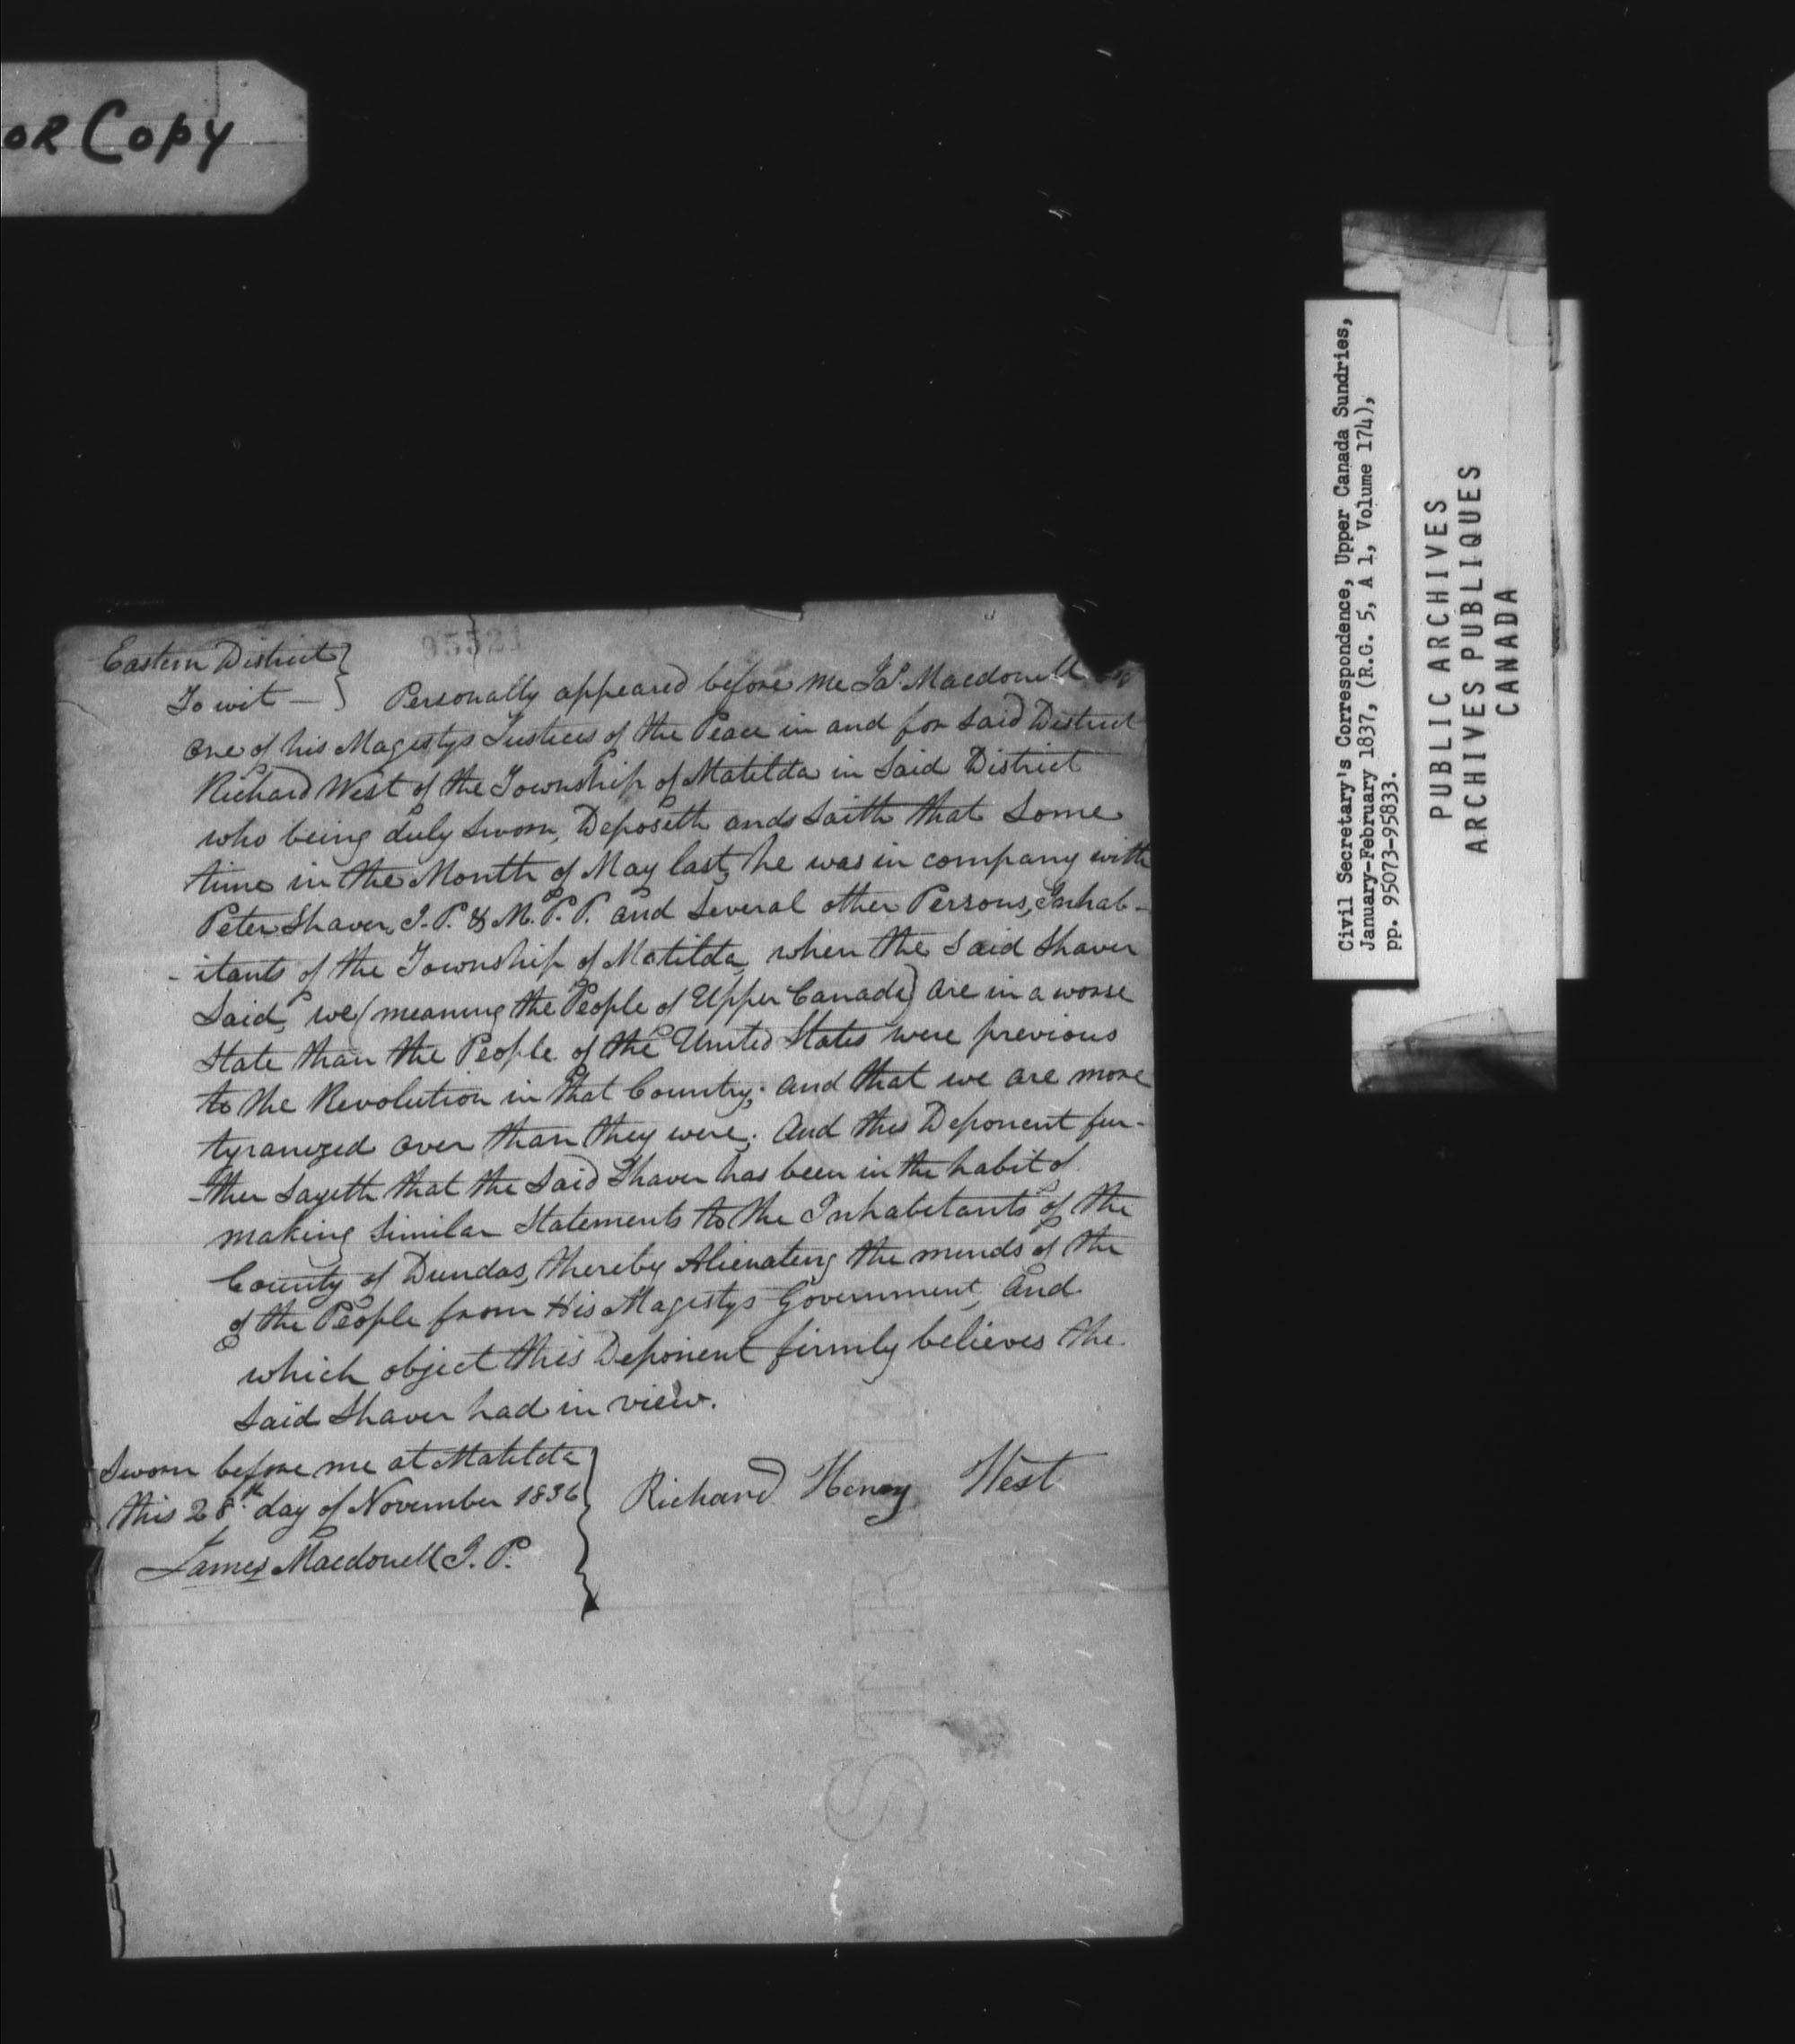 OR Copy
95521
Eastern District }
To wit — } Personally appeared before me Ja.s Macdonell
one of his Magestys Justices of the Peace in and for Said District
Richard West of the Township of Matilda in Said District
who being duly Sworn, Deposeth and Saith that Some
time in the Month of May last, he was in company with
Peter Shaver, J.P. & M.P.P. and Several other Persons, Inhab-
-itants of the Township of Matilda, when the Said Shaver
Said, we (meaning the People of Upper Canada) are in a worse
State than the People of the United States were previous
to the Revolution in that Country; and that we are more
tyranized over than they were; And this Deponent fur-
-ther Sayeth that the Said Shaver has been in the habit of
making Similar Statements to the Inhabitants of the
County of Dundas, thereby Alienateing the minds of the
of the People from His Magestys Government, and
which object this Deponent firmly believes the
Said Shaver had in view.
Sworn before me at Matilda
this 28th day of November 1836
James Macdonell J.P.
Richard Henry West
Civil Secretary's Correspondence, Upper Canada Sundries,
January-February 1837, (R.G. 5, A 1, Volume 174),
pp. 95073-95833.
PUBLIC ARCHIVES
ARCHIVES PUBLIQUES
CANADA